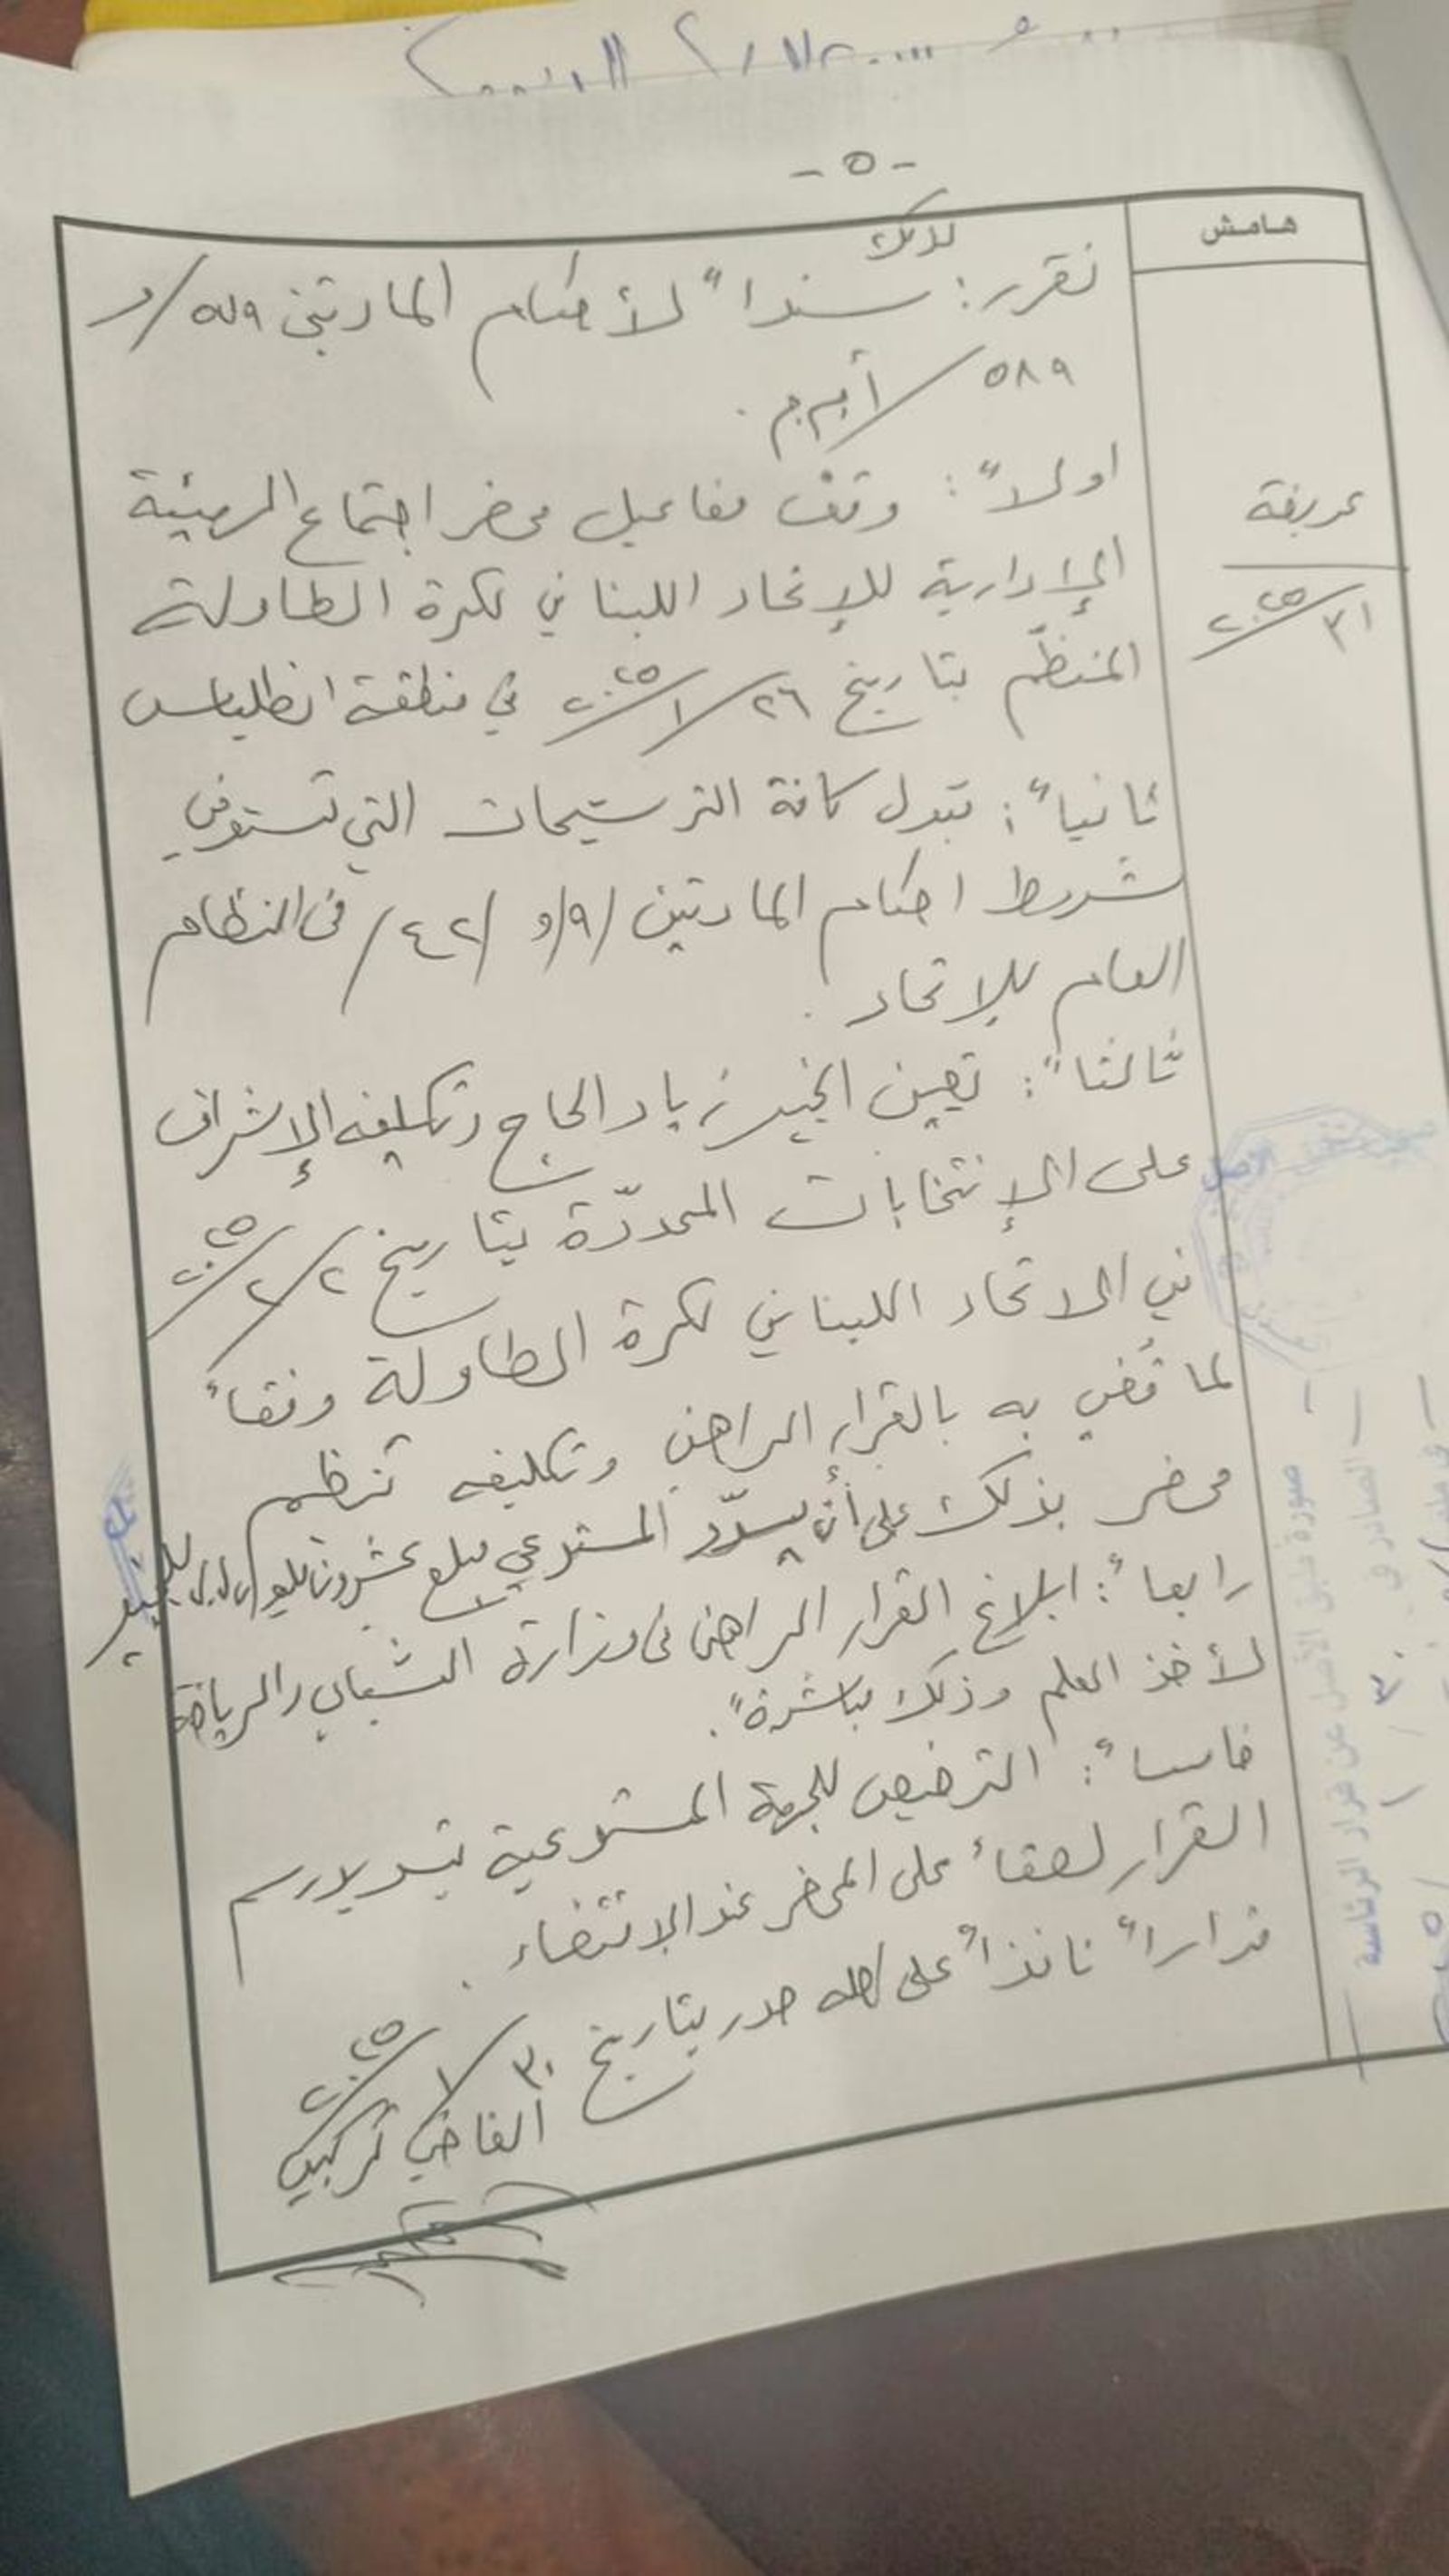 - ٥ -
هامش
لذلك
نقرر: سنداً لأحكام المادتين ٥٧٩/ و
٥٨٩/ أ.م.م.
اولاً: وقف مفاعيل محضر اجتماع الهيئة
الإدارية للإتحاد اللبناني لكرة الطاولة
المنظّم بتاريخ ٢٦/١/٢٠٢٥ في منطقة انطلياس
عريضة
٣١/٢٠٢٥
ثانياً: قبول كافة الترشيحات التي تستوفي
شروط احكام المادتين /٩/ و /٤٢/ من النظام
العام للاتحاد.
ثالثاً: تعيين الخبير زياد الحاج وتكليفه الإشراف
على الإنتخابات المحدّدة بتاريخ ٢/٢/٢٠٢٥
في الاتحاد اللبناني لكرة الطاولة وفقاً
لما قُضي به بالقرار الراهن وتكليفه تنظيم
محضر بذلك على أن يسدّد المستدعي مبلغ عشرون مليون ل.ل. للخبير
رابعاً: ابلاغ القرار الراهن من وزارة الشباب والرياضة
لأخذ العلم وذلك مباشرةً.
خامساً: الترخيص للجهة المستدعية بتسديد رسم
القرار لصقاً على المحضر عند الاقتضاء.
قراراً نافذاً على أصله صدر بتاريخ ٣٠/١/٢٠٢٥
القاضي
صورة طبق الأصل عن قرار الرئاسة
الصادر في ٣٠/١/